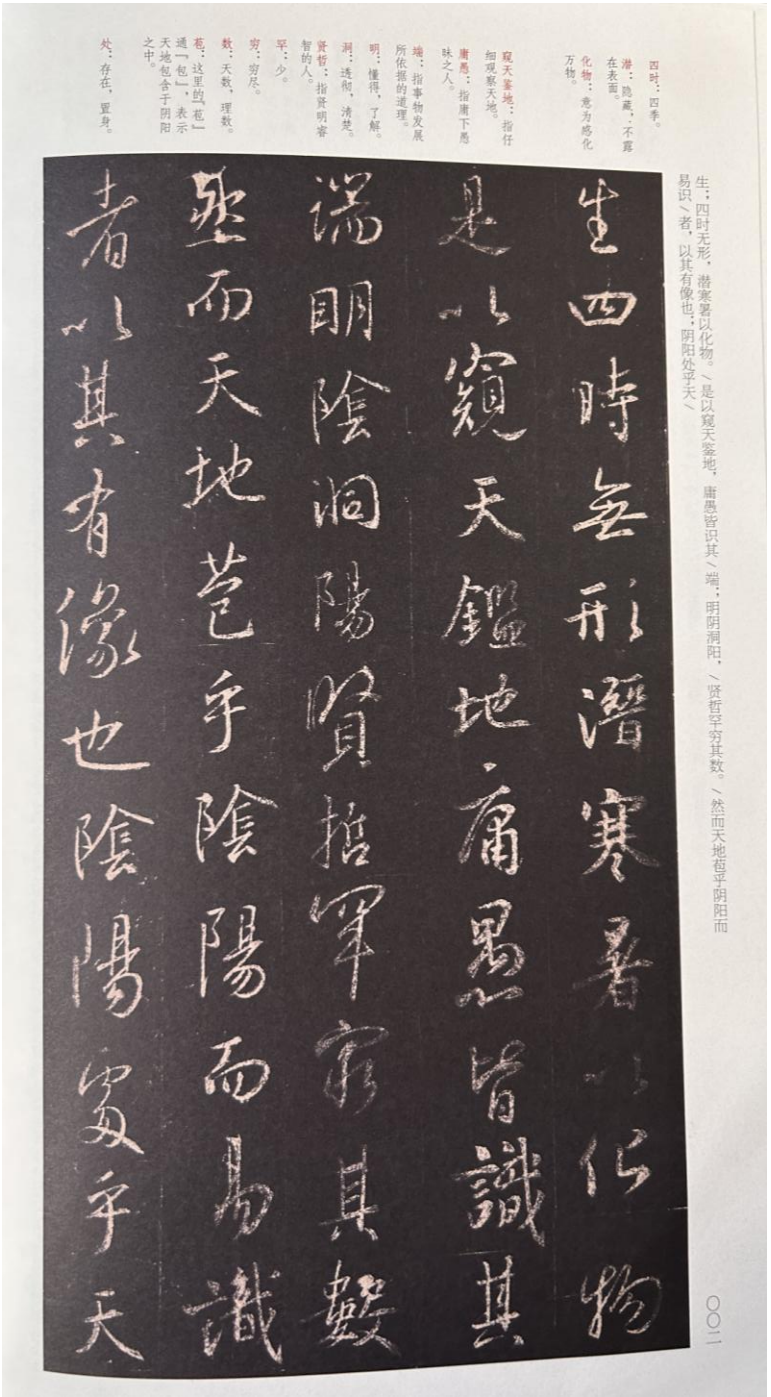 四时：四季。
潜：隐藏，不露
在表面。
化物：意为感化
万物。
窥天鉴地：指仔
细观察天地。
庸愚：指庸下愚
昧之人。
端：指事物发展
所依据的道理。
明：懂得，了解。
洞：透彻，清楚。
贤哲：指贤明睿
智的人。
罕：少。
穷：穷尽。
数：天数，理数。
苞：这里的「苞」
通「包」，表示
天地包含于阴阳
之中。
处：存在，置身。
生；四时无形，潜寒暑以化物。/是以窥天鉴地，庸愚皆识其/端；明阴洞阳，/贤哲罕穷其数。/然而天地苞乎阴阳而
易识/者，以其有像也；阴阳处乎天/
生四時無形潛寒暑以化物
是以窺天鑑地庸愚皆識其
端明陰洞陽賢哲罕窮其數
然而天地苞乎陰陽而易識
者以其有像也陰陽處乎天
〇〇二